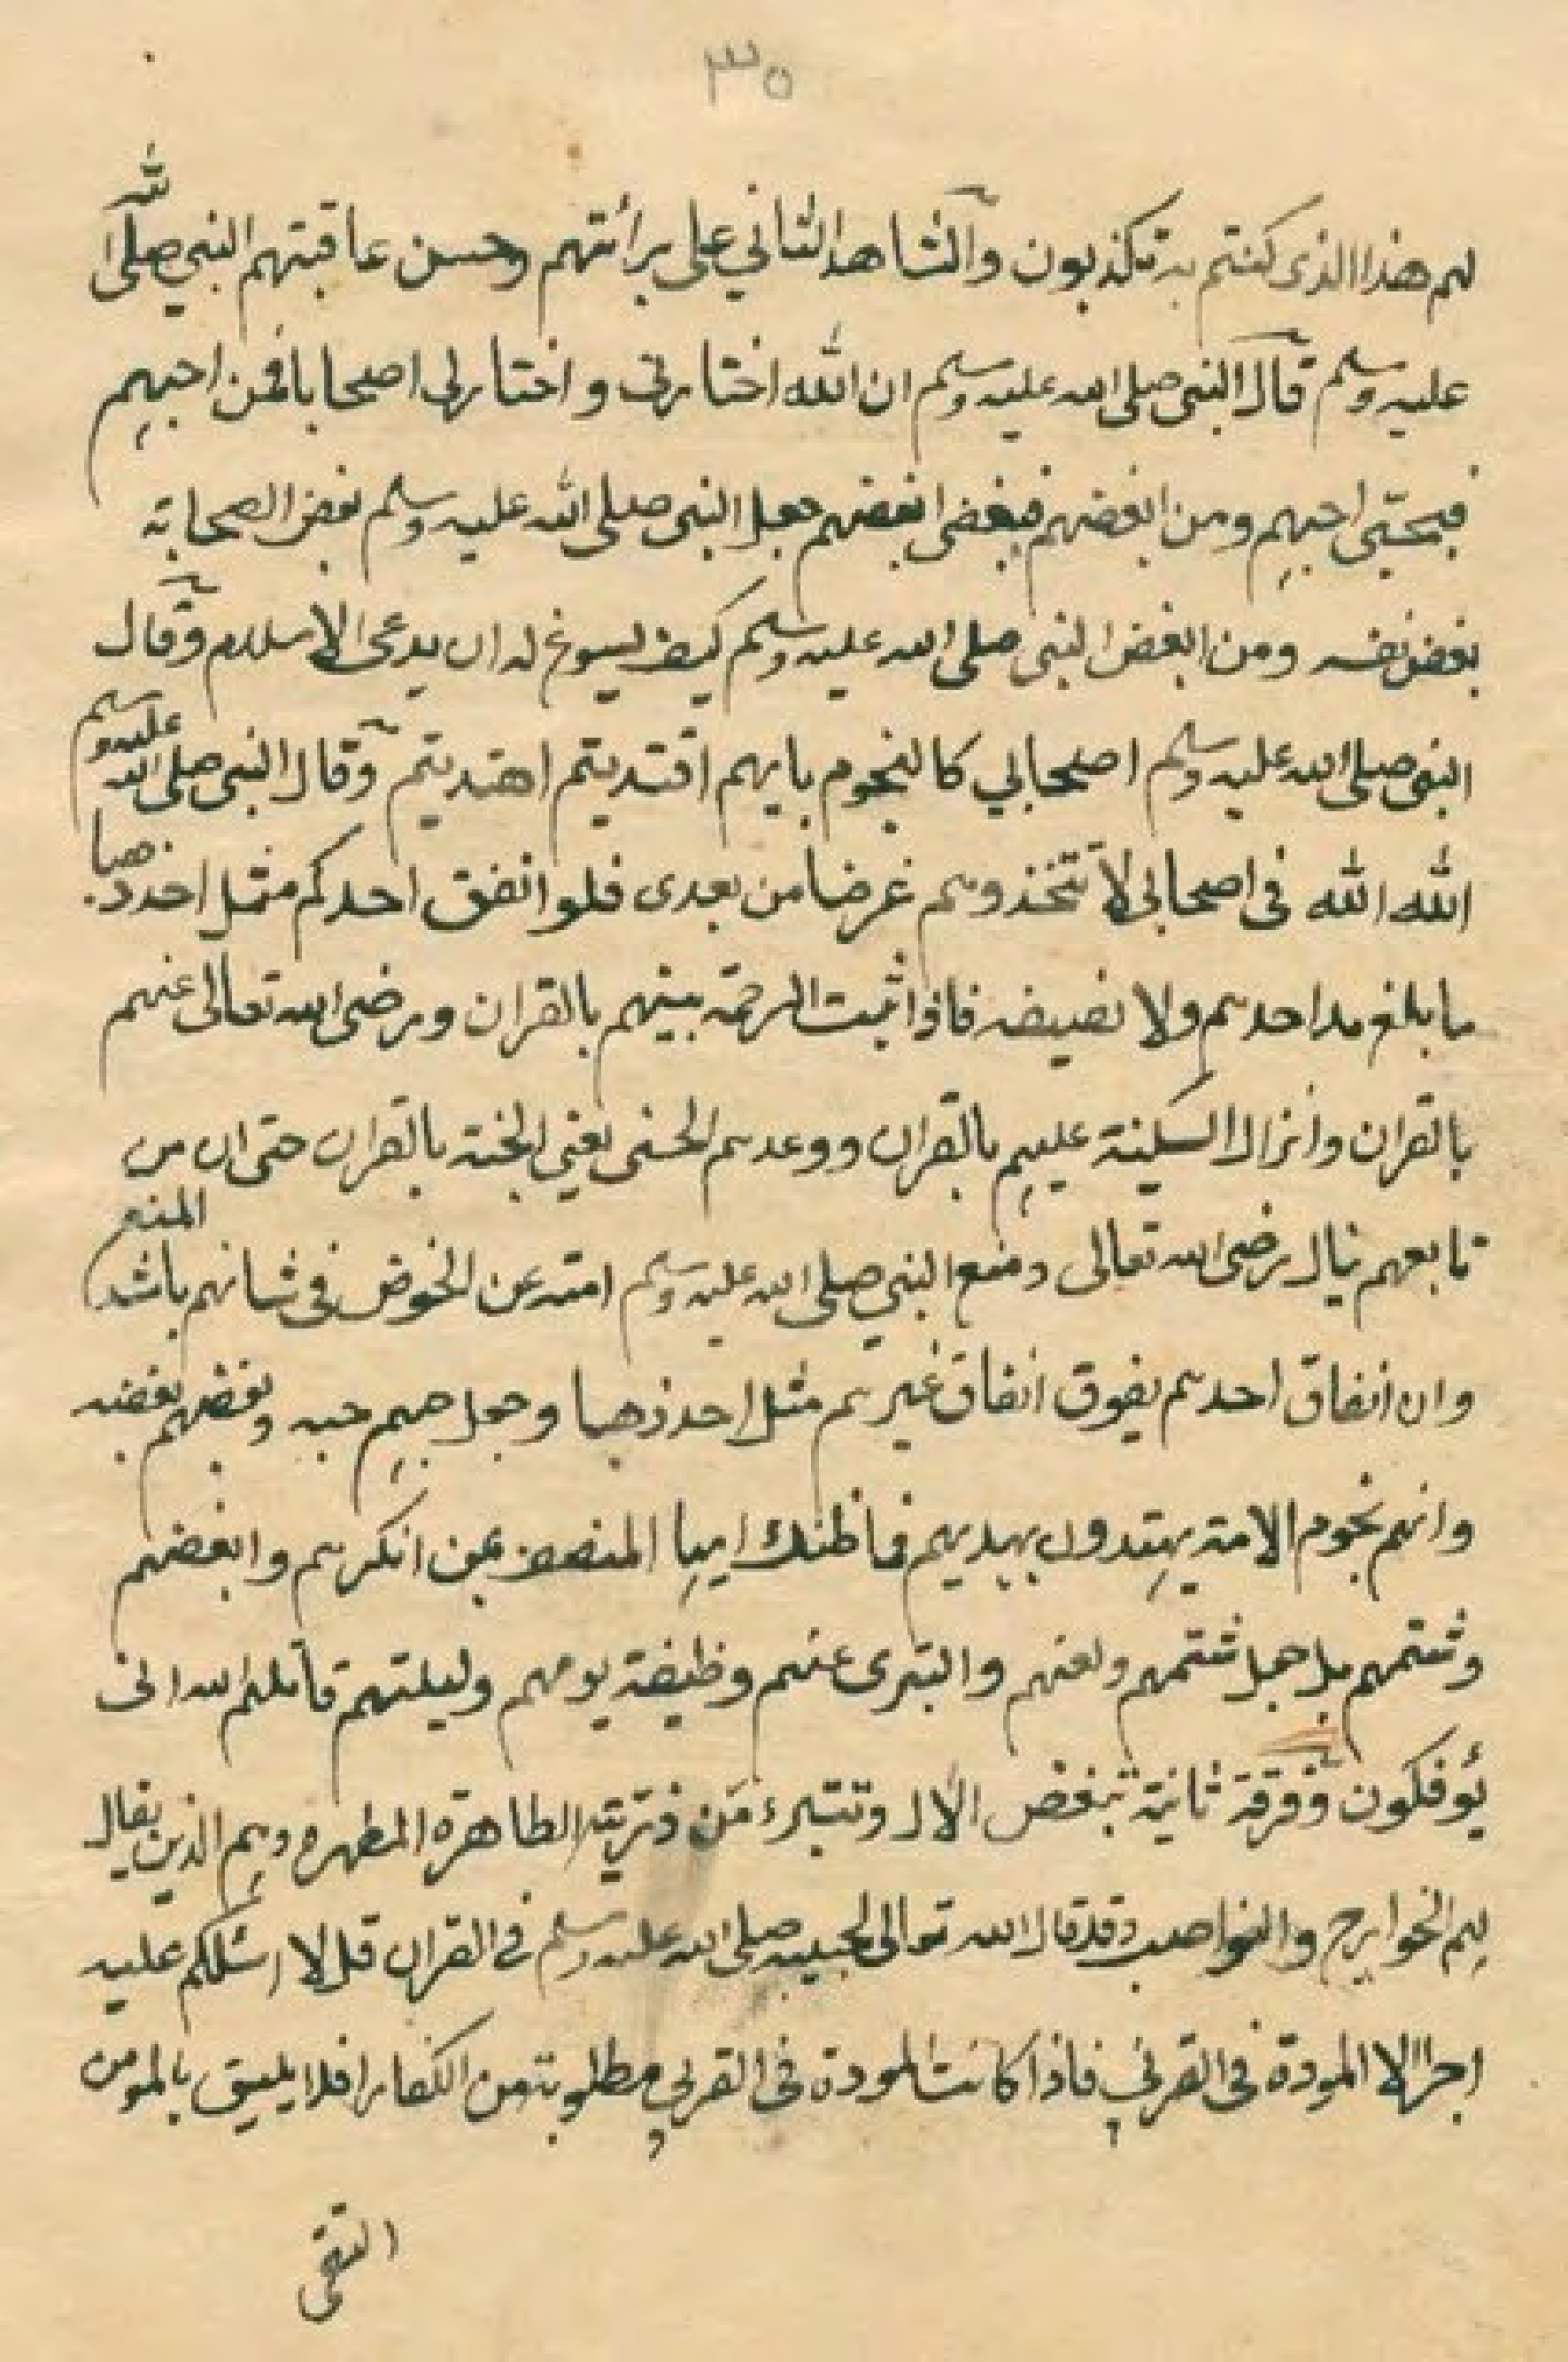 ٣٥
لهم هذا الذى كنتم به تكذبون والشاهد الثاني على برأتهم وحسن عاقبتهم النبي صلى الله
عليه وسلم قال النبى صلى الله عليه وسلم ان الله اختارنى واختار لى اصحابا فمن احبهم
فبحبى احبهم ومن ابغضهم فببغضى ابغضهم جعل النبى صلى الله عليه وسلم بغض الصحابة
بغض نفسه ومن ابغض النبى صلى الله عليه وسلم كيف يسوغ له ان يدعى الاسلام وقال
النبى صلى الله عليه وسلم اصحابي كالنجوم بايهم اقتديتم اهتديتم وقال النبى صلى الله عليه وسلم
الله الله فى اصحابى لا تتخذوهم غرضا من بعدى فلو انفق احدكم مثل احد ذهبا
ما بلغ مد احدهم ولا نصيفه فاذا ثبت الرحمة بينهم بالقران ورضى الله تعالى عنهم
بالقران وانزال السكينة عليهم بالقران ووعدهم الحسنى يعنى الجنة بالقران حتى ان من
تابعهم ينال رضى الله تعالى ومنع النبي صلى الله عليه وسلم امته عن الخوض فى شانهم باشد المنع
وان انفاق احدهم يفوق انفاق غيرهم مثل احد ذهبا وجعل حبهم حبه وبغضهم بغضه
وانهم نجوم الامة يهتدون بهديهم فما ظنك ايها المنصف بمن انكرهم وابغضهم
وشتمهم بل جعل شتمهم ولعنهم والتبرى عنهم وظيفة يومهم وليلتهم قاتلهم الله انى
يؤفكون وفرقة ثانية تبغض الأل وتتبرء من ذريته الطاهرة المطهره وهم الذين يقال
لهم الخوارج والنواصب وقد قال الله تعالى لحبيبه صلى الله عليه وسلم فى القران قل لا اسئلكم عليه
اجرا الا المودة فى القربى فاذا كانت المودة فى القربى مطلوبة من الكفار افلا يليق بالمومن
التقى